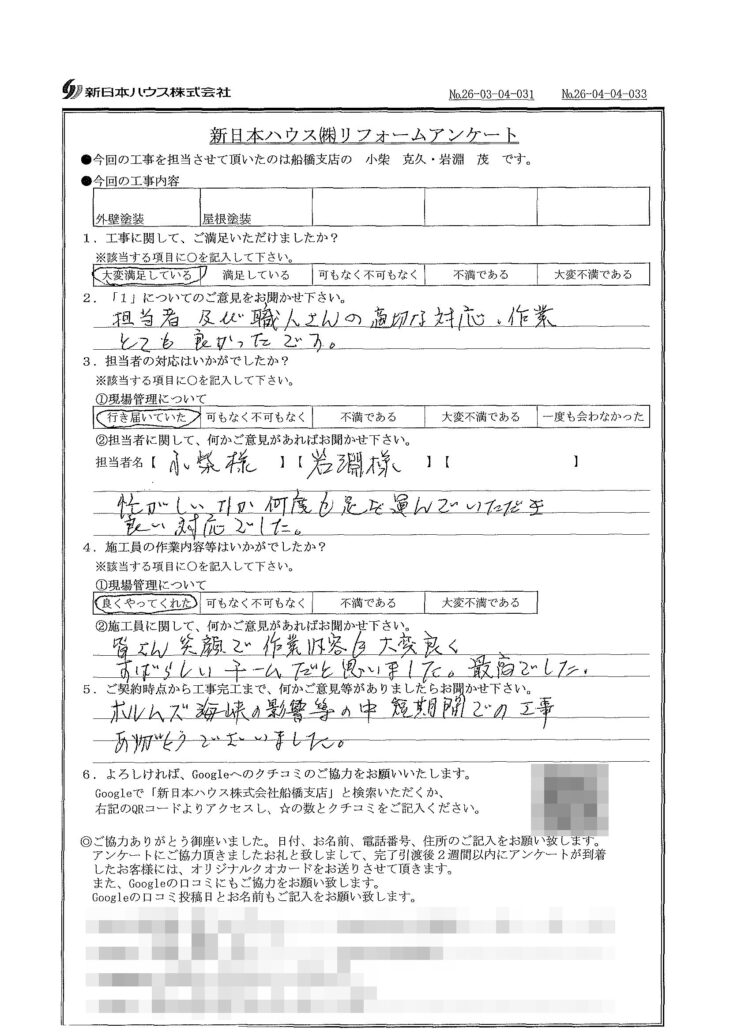 新日本ハウス株式会社
№26-03-04-031 №26-04-04-033
新日本ハウス㈱リフォームアンケート
●今回の工事を担当させて頂いたのは船橋支店の 小柴 克久・岩淵 茂 です。
●今回の工事内容
外壁塗装 屋根塗装
1．工事に関して、ご満足いただけましたか？
※該当する項目に〇を記入して下さい。
大変満足している 満足している 可もなく不可もなく 不満である 大変不満である
2．「1」についてのご意見をお聞かせ下さい。
担当者 及び職人さんの適切な対応、作業
とても良かったです。
3．担当者の対応はいかがでしたか？
※該当する項目に〇を記入して下さい。
①現場管理について
行き届いていた 可もなく不可もなく 不満である 大変不満である 一度も会わなかった
②担当者に関して、何かご意見があればお聞かせ下さい。
担当者名【 小柴様 】【 岩淵様 】【 】
忙がしいなか何度も足を運んでいただき
良い対応でした。
4．施工員の作業内容等はいかがでしたか？
※該当する項目に〇を記入して下さい。
①現場管理について
良くやってくれた 可もなく不可もなく 不満である 大変不満である
②施工員に関して、何かご意見があればお聞かせ下さい。
皆さん笑顔で作業内容も大変良く
すばらしいチームだと思いました。最高でした。
5．ご契約時点から工事完工まで、何かご意見等がありましたらお聞かせ下さい。
ホルムズ海峡の影響等の中 短期間での工事
ありがとうございました。
6．よろしければ、Googleへのクチコミのご協力をお願いいたします。
Googleで「新日本ハウス株式会社船橋支店」と検索いただくか、
右記のQRコードよりアクセスし、☆の数とクチコミをご記入ください。
◎ご協力ありがとう御座いました。日付、お名前、電話番号、住所のご記入をお願い致します。
アンケートにご協力頂きましたお礼と致しまして、完了引渡後２週間以内にアンケートが到着
したお客様には、オリジナルクオカードをお送りさせて頂きます。
また、Googleの口コミにもご協力をお願い致します。
Googleの口コミ投稿日とお名前もご記入をお願い致します。